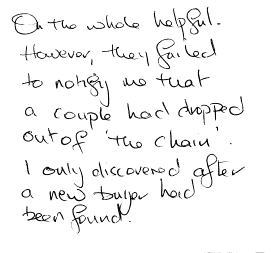 On the whole helpful.
However, they failed
to notify me that
a couple had dropped
out of 'the chain'.
I only discovered after
a new buyer had
been found.